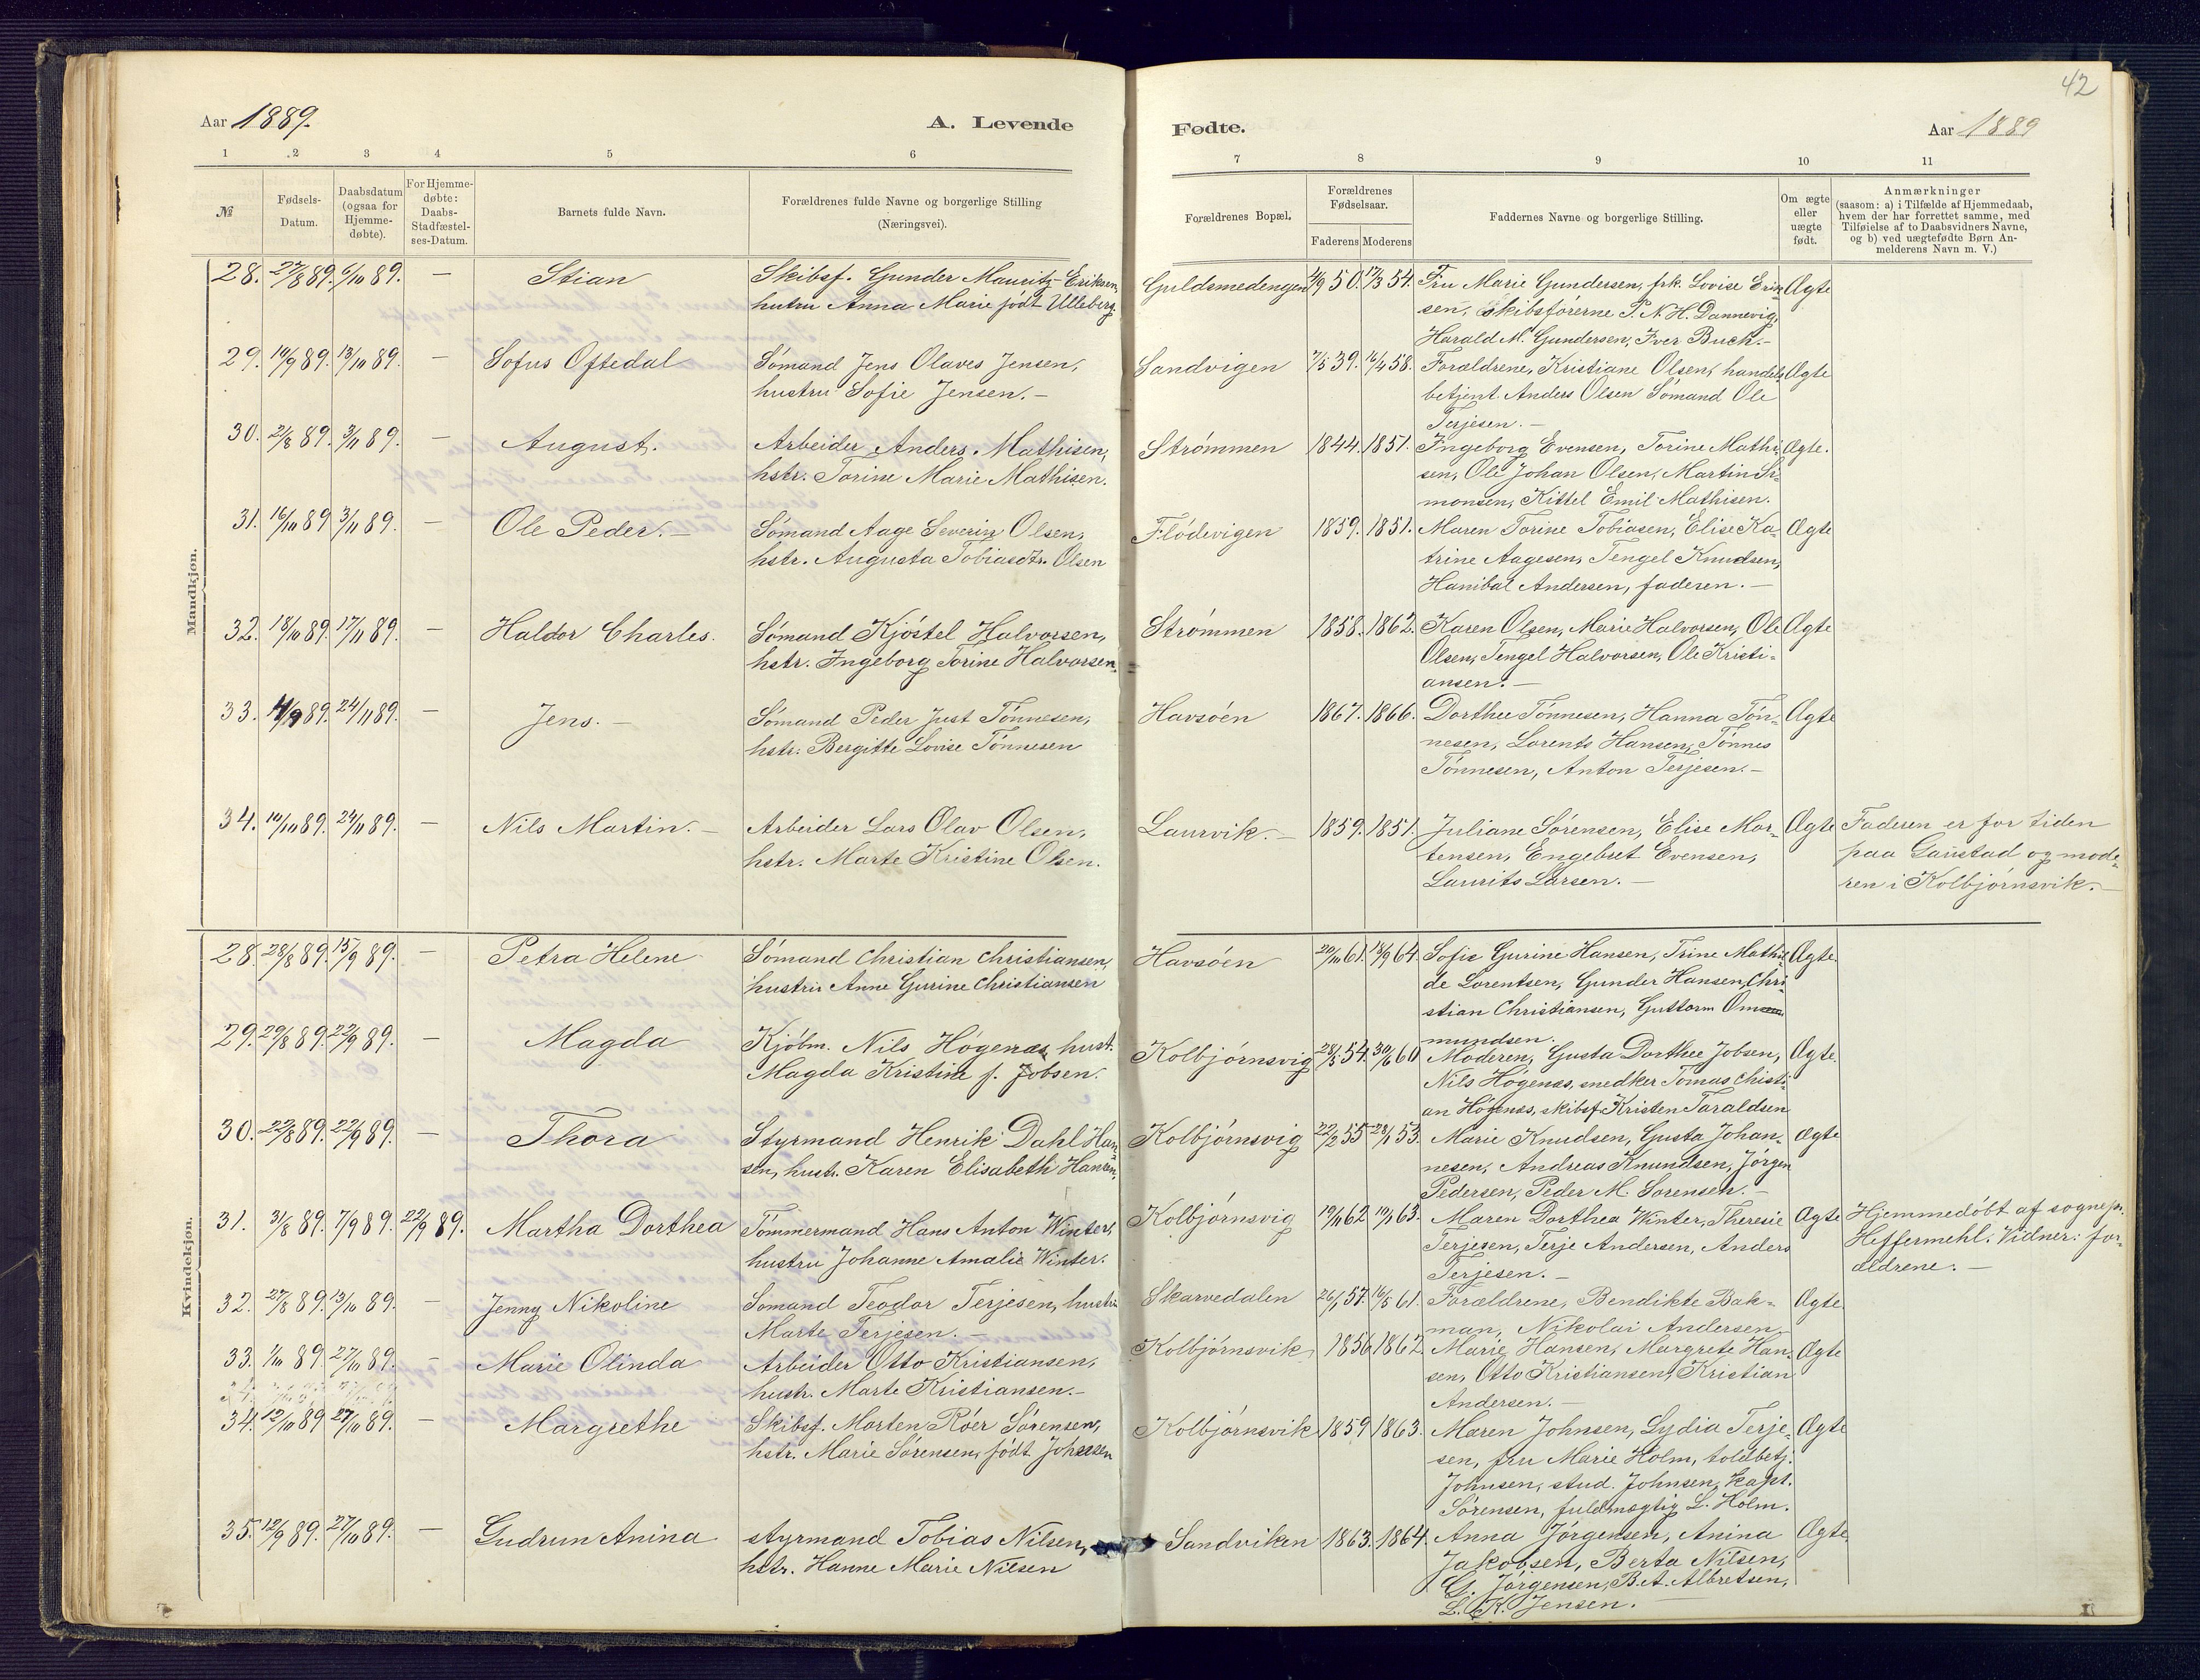 42
Aar 1889.
A. Levende
Fødte.
Aar 1889
1 2 3 4 5 6
7 8 9 10 11
№
Fødsels-
Datum.
Daabsdatum
(ogsaa for
Hjemme-
døbte).
For Hjemme-
døbte:
Daabs-
Stadfæstel-
ses-Datum.
Barnets fulde Navn.
Forældrenes fulde Navne og borgerlige Stilling
(Næringsvei).
Forældrenes Bopæl.
Forældrenes
Fødselsaar.
Faderens Moderens
Faddernes Navne og borgerlige Stilling.
Om ægte
eller
uægte
født.
Anmærkninger
(saasom: a) i Tilfælde af Hjemmedaab,
hvem der har forrettet samme, med
Tilføielse af to Daabsvidners Navne,
og b) ved uægtefødte Børn An-
melderens Navn m. V.)
Mandkjøn.
28. 27/8 89. 6/10 89. — Stian
Skibsf. Gunder Mauritz Eriksen,
hutru Anna Marie født Ulleberg.
Guldsmedengen 4/9 50. 17/3 54.
Fru Marie Gundersen, frk. Lovise Erik
sen, skibsførerne P. N. H. Dannevig,
Harald M. Gundersen, Iver Buch.—
Ægte
29. 19/9 89. 13/10 89. — Sofus Oftedal
Sømand Jens Olaves Jensen,
hustru Sofie Jensen.—
Sandvigen 7/5 39. 16/4 58.
Forældrene, Kristiane Olsen, handels
betjent Anders Olsen Sømand Ole
Terjesen.—
Ægte
30. 21/8 89. 3/11 89. — August.
Arbeider Anders Mathisen,
hstr. Torine Marie Mathisen.
Strømmen 1844. 1851.
Ingeborg Evensen, Torine Mathi
sen, Ole Johan Olsen, Martin Si-
monsen, Kittel Emil Mathisen.
Ægte.
31. 16/10 89 3/11 89. — Ole Peder.—
Sømand Aage Severin Olsen,
hstr. Augusta Tobiasdtr. Olsen
Flødevigen 1859. 1851.
Maren Torine Tobiasen, Elise Ka-
trine Aagesen, Tengel Knudsen,
Hanibal Andersen, faderen.—
Ægte
32. 18/10 89. 17/11 89. — Haldor Charles.
Sømand Kjøstel Halvorsen,
hstr. Ingeborg Torine Halvorsen.
Strømmen 1858. 1862.
Karen Olsen, Marie Halvorsen, Ole
Olsen, Tengel Halvorsen, Ole Kristi-
ansen.—
Ægte
33. 89. 24/11 89. — Jens.—
Sømand Peder Just Tønnesen,
hstr. Bergitte Lovise Tønnesen
Havsøen 1867. 1866.
Dorthee Tønnesen, Hanna Tøn-
nesen, Lorents Hansen, Tønnes
Tønnesen, Anton Terjesen.—
Ægte
34. 19/10 89. 24/11 89. — Nils Martin.—
Arbeider Lars Olav Olsen,
hstr. Marte Kristine Olsen.
Laurvik.— 1859. 1851.
Juliane Sørensen, Elise Mor-
tensen, Engebret Evensen,
Laurits Larsen.—
Ægte
Faderen er for tiden
paa Gaustad og mode-
ren i Kolbjørnsvik.—
Kvindekjøn.
28. 28/8 89. 15/9 89. — Petra Helene
Sømand Christian Christiansen,
hustru Anne Gurine Christiansen
Havsøen 20/10 61. 18/9 64.
Sofie Gurine Hansen, Trine Mathil
de Lorentsen, Gunder Hansen, Chri-
stian Christiansen, Guttorm Om
mundsen.
Ægte.
29. 29/8 89. 22/9 89. — Magda
Kjøbm. Nils Høgenæs, hust.
Magda Kristine f. Jobsen.
Kolbjørnsvig 28/5 54. 30/6 60
Moderen, Gusta Dorthee Jobsen,
Nils Høgenæs, snedker Tomas Christi-
an Høgenæs, skibsf. Kristen Taraldsen
Ægte.
30. 22/8 89. 22/9 89. — Thora
Styrmand Henrik Dahl Han-
sen, hustr. Karen Elisabeth Hansen.
Kolbjørnsvig 22/2 55 28/1 53.
Marie Knudsen, Gusta Johan-
nesen, Andreas Knundsen, Jørgen
Pedersen, Peder M. Sorensen.—
Ægte
31. 31/8 89. 7/9 89. 22/9 89. Martha Dorthea
Tømmermand Hans Anton Winter,
hustru Johanne Amalie Winter.
Kolbjørnsvig 19/11 62 19/1 63.
Maren Dorthea Winter, Theresie
Terjesen, Terje Andersen, Anders
Terjesen.—
Ægte
Hjemmedøbt af sognepr.
Heffermehl. Vidner: for-
ældrene.—
32. 27/8 89. 13/10 89. — Jenny Nikoline
Sømand Teodor Terjesen, hustru
Marte Terjesen.—
Skarvedalen 26/1 57. 16/5 61.
Forældrene, Bendikte Bak-
man, Nikolai Andersen
Ægte.
33. 1/10 89 27/10 89. — Marie Olinda
Arbeider Otto Kristiansen,
hustr. Marte Kristiansen.—
Kolbjørnsvik 1856 1862
Marie Hansen, Margrete Han-
sen, Otto Kristiansen, Kristian
Andersen.—
Ægte
34. 12/10 89 27/10 89. — Margrethe
Skibsf. Morten Røer Sørensen,
hstr. Marie Sørensen, født Johnsen
Kolbjørnsvik 1859 1863.
Maren Johnsen, Lydia Terje-
sen, fru Marie Holm, toldbetj.
Johnsen, stud. Johnsen, Kapt.
Sørensen, fuldmægtig L. Holm.
Ægte
35. 12/9 89. 27/10 89. — Gudrun Anina
styrmand Tobias Nilsen,
hstr. Hanne Marie Nilsen
Sandviken 1863. 1864.
Anna Jørgensen, Anina
Jakobsen, Berta Nilsen,
G. Jørgensen, B. A. Albretsen,
L. K. Jensen.—
Ægte.